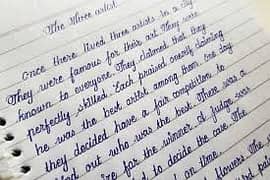 The three artist
Once there lived three artists in a city.
They were famous for their art. They were
known to everyone. They claimed that they
perfectly skilled. Each praised oneself claiming
he was the best artist among them. one day
they decided have a fair competition to
out who was the best. There was a
for the winner of judge was
to decide the case. The
on time.
flowers. The